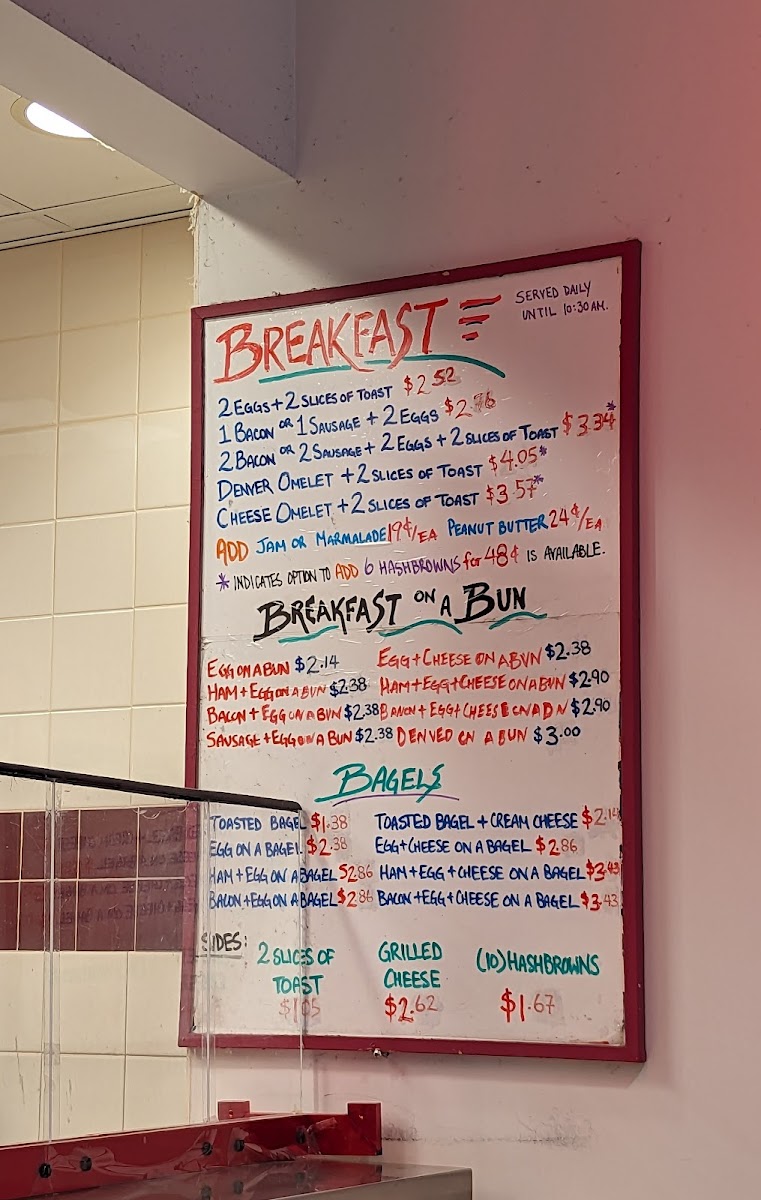 BREAKFAST
SERVED DAILY
UNTIL 10:30AM.
2 EGGS + 2 SLICES OF TOAST $2.52
1 BACON OR 1 SAUSAGE + 2 EGGS $2.76
2 BACON OR 2 SAUSAGE + 2 EGGS + 2 SLICES OF TOAST $3.34*
DENVER OMELET + 2 SLICES OF TOAST $4.05*
CHEESE OMELET + 2 SLICES OF TOAST $3.57*
ADD JAM OR MARMALADE 19¢/EA PEANUT BUTTER 24¢/EA
* INDICATES OPTION TO ADD 6 HASHBROWNS for 48¢ IS AVAILABLE.
BREAKFAST ON A BUN
EGG ON A BUN $2.14 EGG + CHEESE ON A BUN $2.38
HAM + EGG ON A BUN $2.38 HAM + EGG + CHEESE ON A BUN $2.90
BACON + EGG ON A BUN $2.38 BACON + EGG + CHEESE ON A BUN $2.90
SAUSAGE + EGG ON A BUN $2.38 DENVER ON A BUN $3.00
BAGELS
TOASTED BAGEL $1.38 TOASTED BAGEL + CREAM CHEESE $2.14
EGG ON A BAGEL $2.38 EGG + CHEESE ON A BAGEL $2.86
HAM + EGG ON A BAGEL $2.86 HAM + EGG + CHEESE ON A BAGEL $3.43
BACON + EGG ON A BAGEL $2.86 BACON + EGG + CHEESE ON A BAGEL $3.43
SIDES:
2 SLICES OF TOAST $1.05
GRILLED CHEESE $2.62
(10) HASHBROWNS $1.67